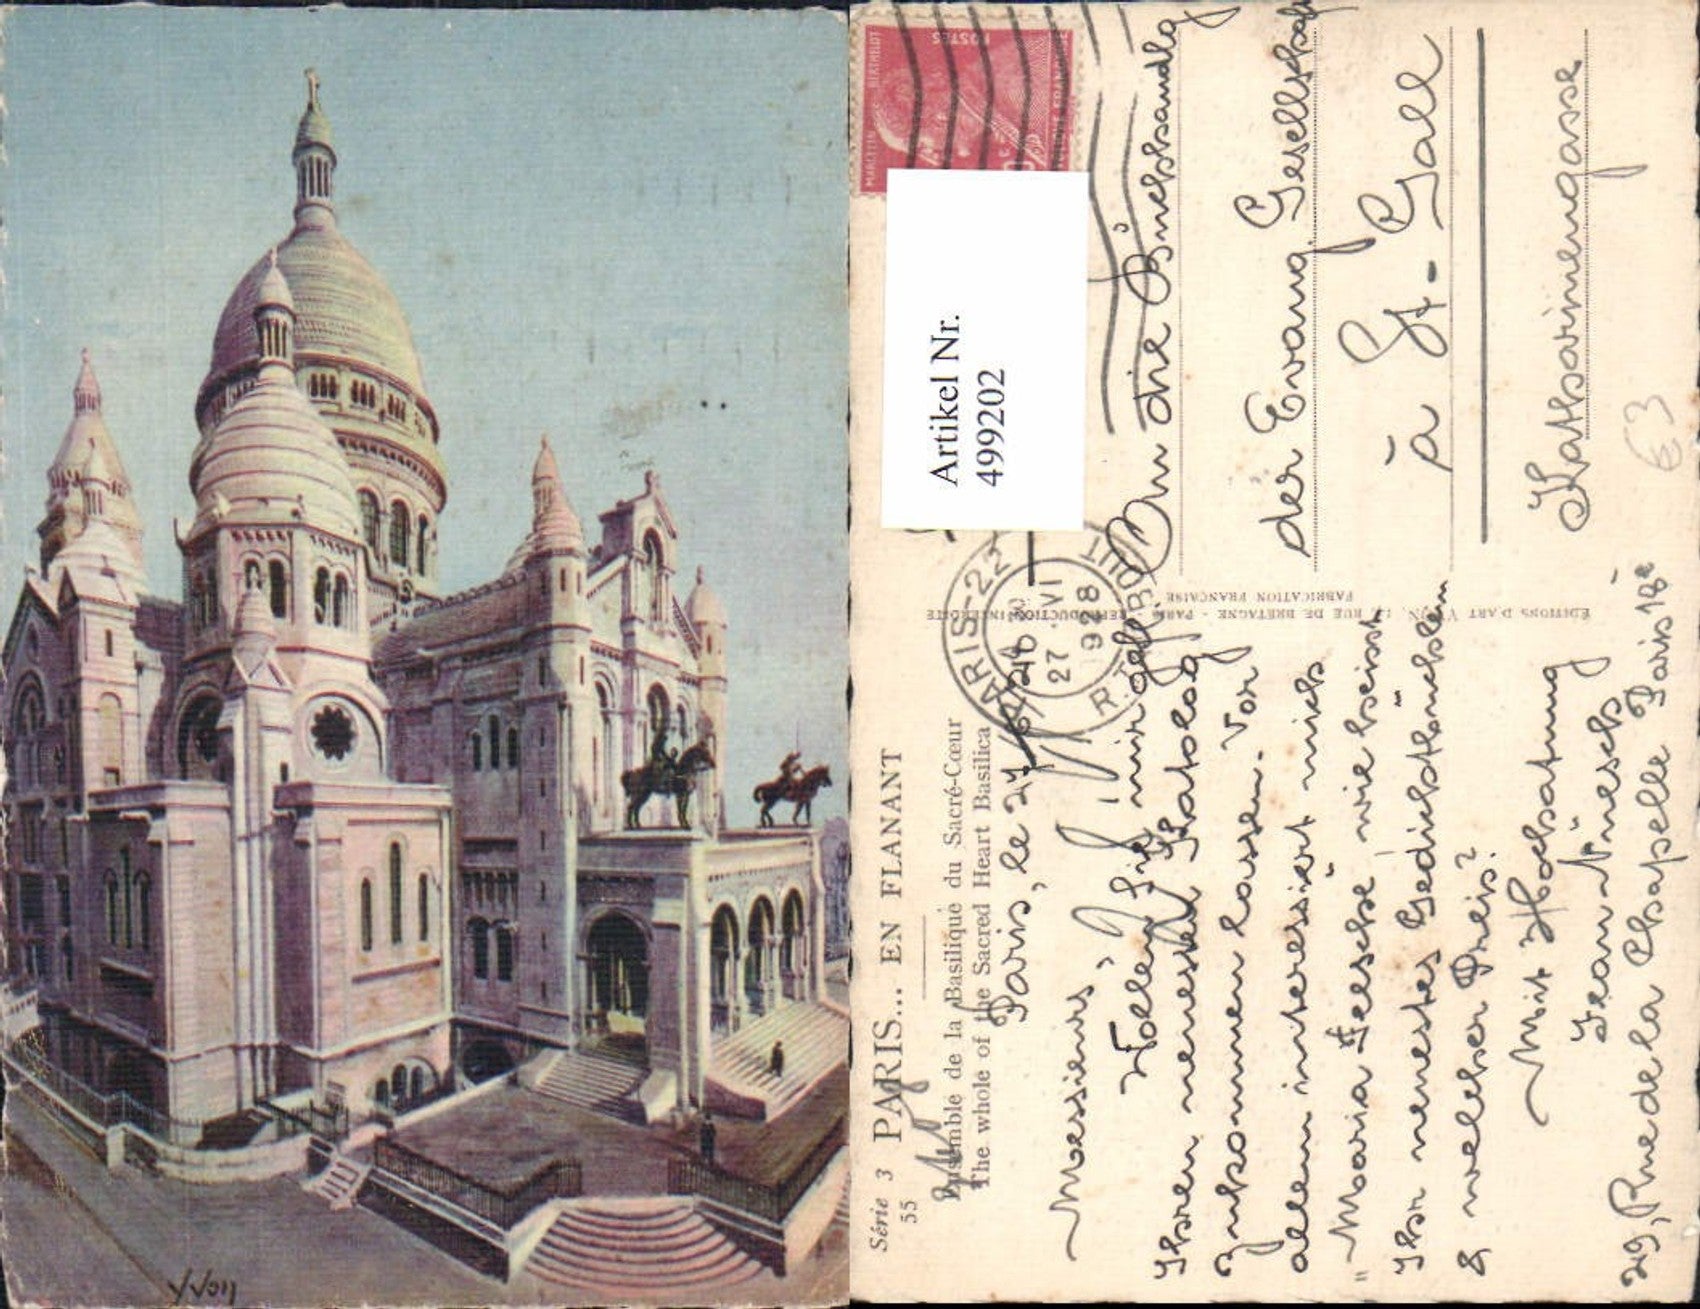 Yvon
Série 3
55
PARIS... EN FLANANT
Ensemble de la Basilique du Sacré-Cœur
The whole of the Sacred Heart Basilica
Paris, le 27
Messieurs,
Wollen Sie mir gefl.
Ihren neuesten Katalog
zukommen lassen. Vor
allem interessiert mich
"Maria Feesche" wie heisst
Ihr neuestes Gedichtbüchlein
& welcher Preis?
Mit Hochachtung
Jean Nüesch
29, Rue de la Chapelle Paris 18e
ÉDITIONS D'ART YVON, RUE DE BRETAGNE - PARIS - REPRODUCTION INTERDITE
FABRICATION FRANÇAISE
PARIS-22
27 VI
1928
R. TAITBOUT
POSTES
MARCELIN BERTHELOT
Artikel Nr.
4992202
An die Buchhandlg
der Evang. Gesellschaft
à St-Gall
Katharinengasse
€3